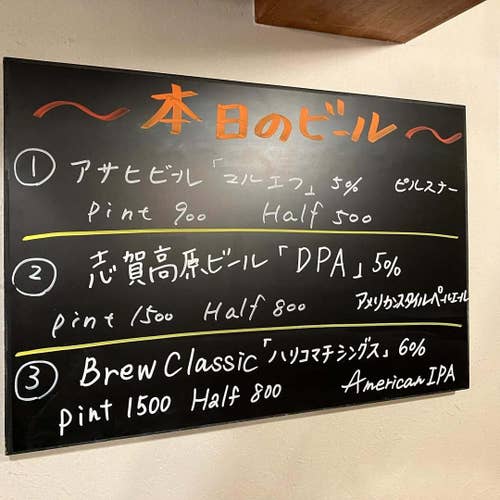 〜本日のビール〜
① アサヒビール「マルエフ」5% ピルスナー
Pint 900 Half 500
② 志賀高原ビール「DPA」5%
Pint 1500 Half 800 アメリカンスタイルペールエール
③ Brew Classic「ハリコマチシングス」6%
Pint 1500 Half 800 American IPA